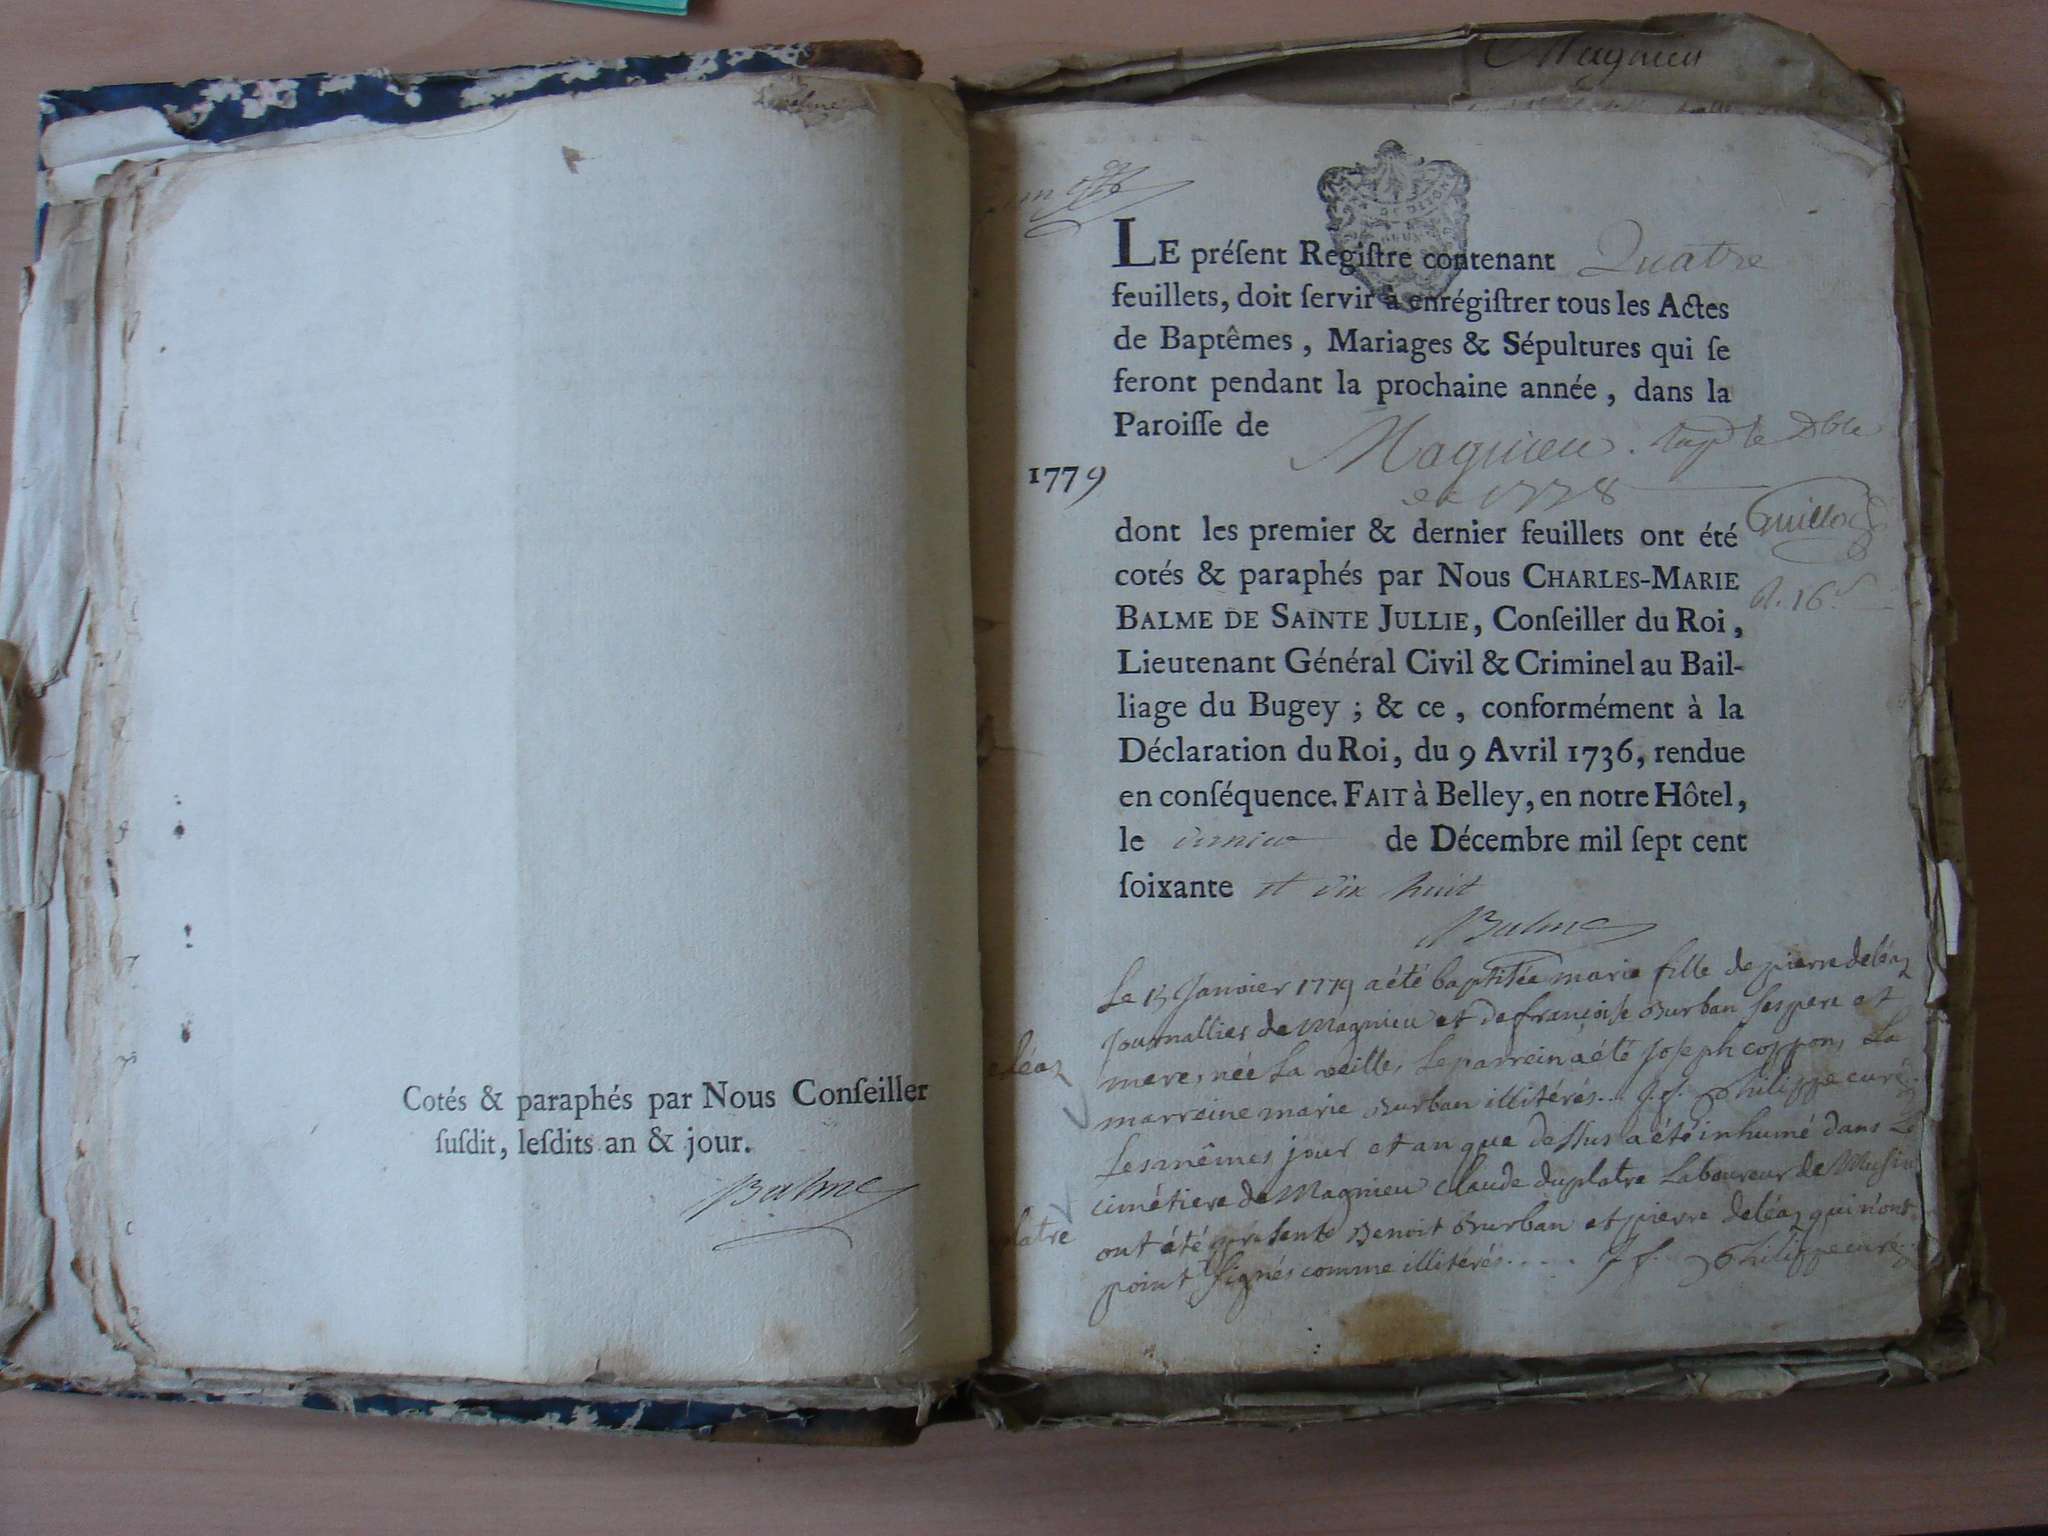 Cotés & paraphés par Nous Conſeiller
ſuſdit, leſdits an & jour.
Balme
Magnieu
LE préſent Regiſtre contenant Quatre
feuillets, doit ſervir à enrégiſtrer tous les Actes
de Baptêmes, Mariages & Sépultures qui ſe
feront pendant la prochaine année, dans la
Paroiſſe de Magnieu.
1779
1778
dont les premier & dernier feuillets ont été
cotés & paraphés par Nous CHARLES-MARIE
BALME DE SAINTE JULLIE, Conſeiller du Roi,
Lieutenant Général Civil & Criminel au Bail-
liage du Bugey ; & ce, conformément à la
Déclaration du Roi, du 9 Avril 1736, rendue
en conſéquence. FAIT à Belley, en notre Hôtel,
le dernier de Décembre mil ſept cent
ſoixante et dix huit
Balme
Le 15 Janvier 1779 a été baptisée marie fille de pierre deléaz
journallier de Magnieu et de françoise Burban ses pere et
mere, née la veille, le parrein a été joseph coppon, la
marreine marie Burban illitérés... j. f. Philippe curé
Les mêmes jour et an que dessus a été inhumé dans le
cimétiere de Magnieu claude duplatre Laboureur de Musin
ont été présents Benoit Burban et pierre deléaz qui n'ont
point signés comme illitérés..... j. f. Philippe curé